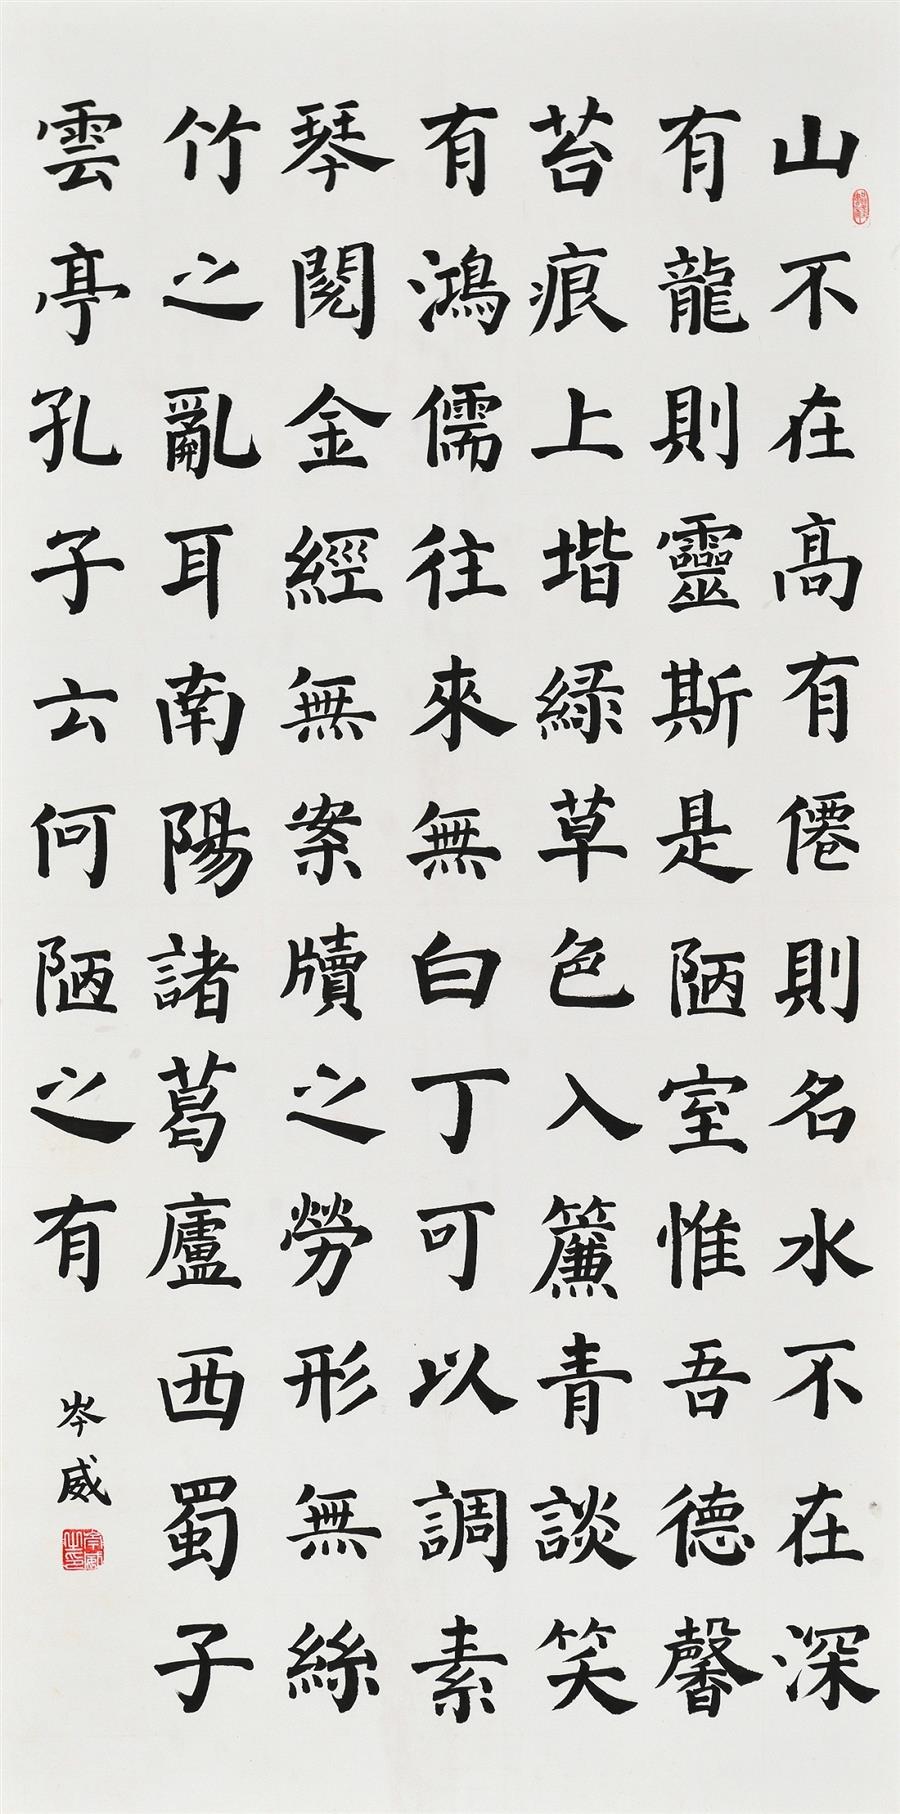 山不在高有僊則名水不在深
有龍則靈斯是陋室惟吾德馨
苔痕上堦綠草色入簾青談笑
有鴻儒往來無白丁可以調素
琴閱金經無案牘之勞形無絲
竹之亂耳南陽諸葛廬西蜀子
雲亭孔子云何陋之有
岑威